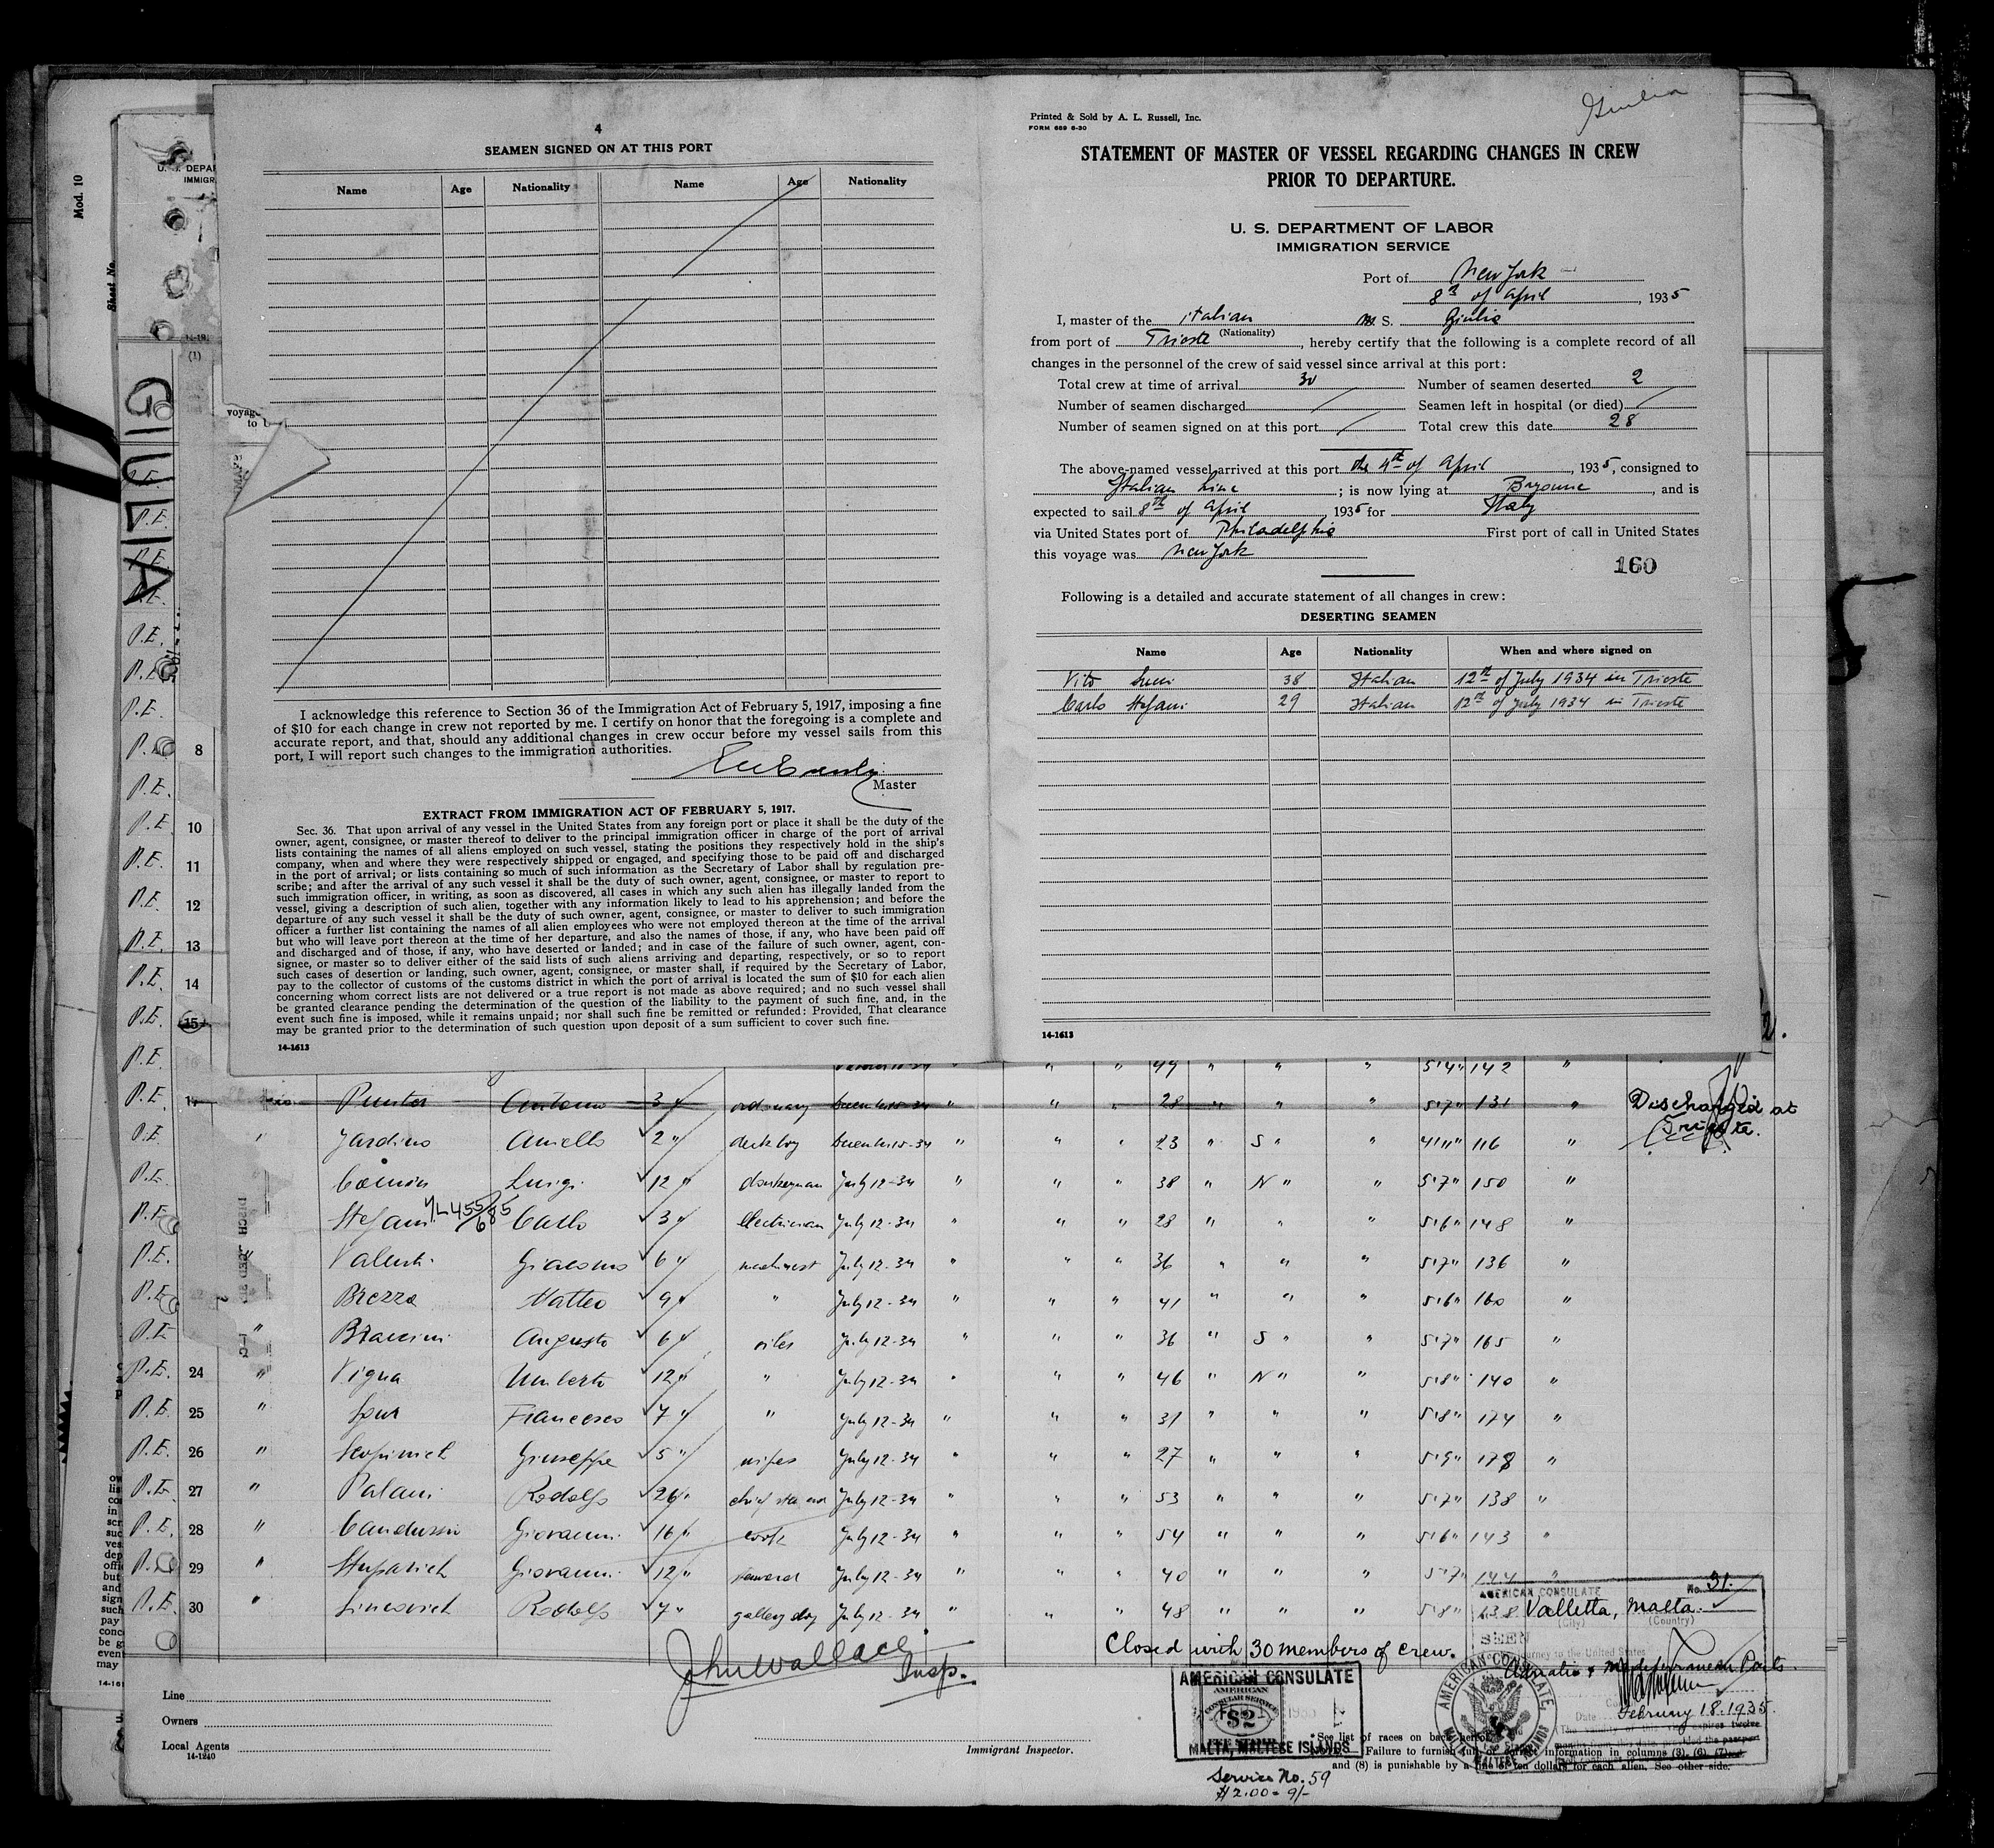 4
SEAMEN SIGNED ON AT THIS PORT
Name Age Nationality Name Age Nationality
I acknowledge this reference to Section 36 of the Immigration Act of February 5, 1917, imposing a fine
of $10 for each change in crew not reported by me. I certify on honor that the foregoing is a complete and
accurate report, and that, should any additional changes in crew occur before my vessel sails from this
port, I will report such changes to the immigration authorities.
Master
EXTRACT FROM IMMIGRATION ACT OF FEBRUARY 5, 1917.
Sec. 36. That upon arrival of any vessel in the United States from any foreign port or place it shall be the duty of the
owner, agent, consignee, or master thereof to deliver to the principal immigration officer in charge of the port of arrival
lists containing the names of all aliens employed on such vessel, stating the positions they respectively hold in the ship's
company, when and where they were respectively shipped or engaged, and specifying those to be paid off and discharged
in the port of arrival; or lists containing so much of such information as the Secretary of Labor shall by regulation pre-
scribe; and after the arrival of any such vessel it shall be the duty of such owner, agent, consignee, or master to report to
such immigration officer, in writing, as soon as discovered, all cases in which any such alien has illegally landed from the
vessel, giving a description of such alien, together with any information likely to lead to his apprehension; and before the
departure of any such vessel it shall be the duty of such owner, agent, consignee, or master to deliver to such immigration
officer a further list containing the names of all alien employees who were not employed thereon at the time of the arrival
but who will leave port thereon at the time of her departure, and also the names of those, if any, who have been paid off
and discharged and of those, if any, who have deserted or landed; and in case of the failure of such owner, agent, con-
signee, or master so to deliver either of the said lists of such aliens arriving and departing, respectively, or so to report
such cases of desertion or landing, such owner, agent, consignee, or master shall, if required by the Secretary of Labor,
pay to the collector of customs of the customs district in which the port of arrival is located the sum of $10 for each alien
concerning whom correct lists are not delivered or a true report is not made as above required; and no such vessel shall
be granted clearance pending the determination of the question of the liability to the payment of such fine, and, in the
event such fine is imposed, while it remains unpaid; nor shall such fine be remitted or refunded: Provided, That clearance
may be granted prior to the determination of such question upon deposit of a sum sufficient to cover such fine.
14-1613
Giulia
Printed & Sold by A. L. Russell, Inc.
FORM 689 6-30
STATEMENT OF MASTER OF VESSEL REGARDING CHANGES IN CREW
PRIOR TO DEPARTURE.
U. S. DEPARTMENT OF LABOR
IMMIGRATION SERVICE
Port of New York
8th of April, 1935
I, master of the italian M S. Giulia
(Nationality)
from port of Trieste, hereby certify that the following is a complete record of all
changes in the personnel of the crew of said vessel since arrival at this port:
Total crew at time of arrival 30 Number of seamen deserted 2
Number of seamen discharged / Seamen left in hospital (or died) /
Number of seamen signed on at this port / Total crew this date 28
The above-named vessel arrived at this port the 4th of April, 1935, consigned to
Italian Line; is now lying at Bayonne, and is
expected to sail 8th of April, 1935 for Italy
via United States port of Philadelphia First port of call in United States
this voyage was New York
160
Following is a detailed and accurate statement of all changes in crew:
DESERTING SEAMEN
Name Age Nationality When and where signed on
Vito 38 Italian 12th of July 1934 in Trieste
Carlo Stefani 29 Italian 12th of July 1934 in Trieste
14-1613
Mod. 10
Sheet No.
GIULIA
P.E. 8
P.E.
P.E. 10
P.E. 11
P.E. 12
P.E. 13
P.E. 14
P.E. 15
P.E. 16 " " 49 " " " 5'4" 142 "
P.E. 17 Antonio 3 " ordinary 15-34 " " " 28 " " " 5'7" 131 " Discharged at Trieste.
P.E. " Jardino Aniello 2 " deck boy 15-34 " " " 23 " S " " 4'11" 116 "
P.E. Luigi 12 " donkeyman July 12-34 " " " 38 " N " " 5'7" 150 "
P.E. Stefani Carlo 3 " Electrician July 12-34 " " " 28 " " " 5'6" 148 "
P.E. " Valenti Giacomo 6 " machinist July 12-34 " " " 36 " " " 5'7" 136 "
P.E. Brezza Matteo 9 " " July 12-34 " " " 41 " " " 5'6" 160 "
P.E. " Braccini Augusto 6 " oiler July 12-34 " " " 36 " S " " 5'7" 165 "
P.E. 24 " Vigna Umberto 12 " " July 12-34 " " " 46 " N " " 5'8" 140 "
P.E. 25 " Francesco 7 " " July 12-34 " " " 31 " " " 5'8" 174 "
P.E. 26 " Scopinich Giuseppe 5 " wiper July 12-34 " " " 27 " " " 5'9" 178 "
P.E. 27 " Palani Rodolfo 26 " July 12-34 " " " 53 " " " 5'7" 138 "
P.E. 28 " Candussi Giovanni 16 " cook July 12-34 " " " 54 " " " 5'6" 143 "
P.E. 29 " Stuparich Giovanni 12 " steward July 12-34 " " " 40 " " " 5'7" 144 "
P.E. 30 " Rodolfo 7 " galley boy July 12-34 " " " 48 " " " 5'8" 138
John Wallace Insp.
Closed with 30 members of crew.
AMERICAN CONSULATE No. 31.
Valletta, Malta.
(City) (Country)
SEEN
Adriatic & Mediterranean Ports.
Date February 18. 1935.
AMERICAN CONSULATE
AMERICAN
CONSULAR SERVICE
$2
MALTA, MALTESE ISLANDS
AMERICAN CONSULATE
MALTESE ISLANDS
Line
Owners
Local Agents
14-1240
Immigrant Inspector.
*See list of races on back hereof.
Failure to furnish full or correct information in columns (3), (6), (7),
and (8) is punishable by a fine of ten dollars for each alien. See other side.
Service No. 59
$2.00 = 9/-